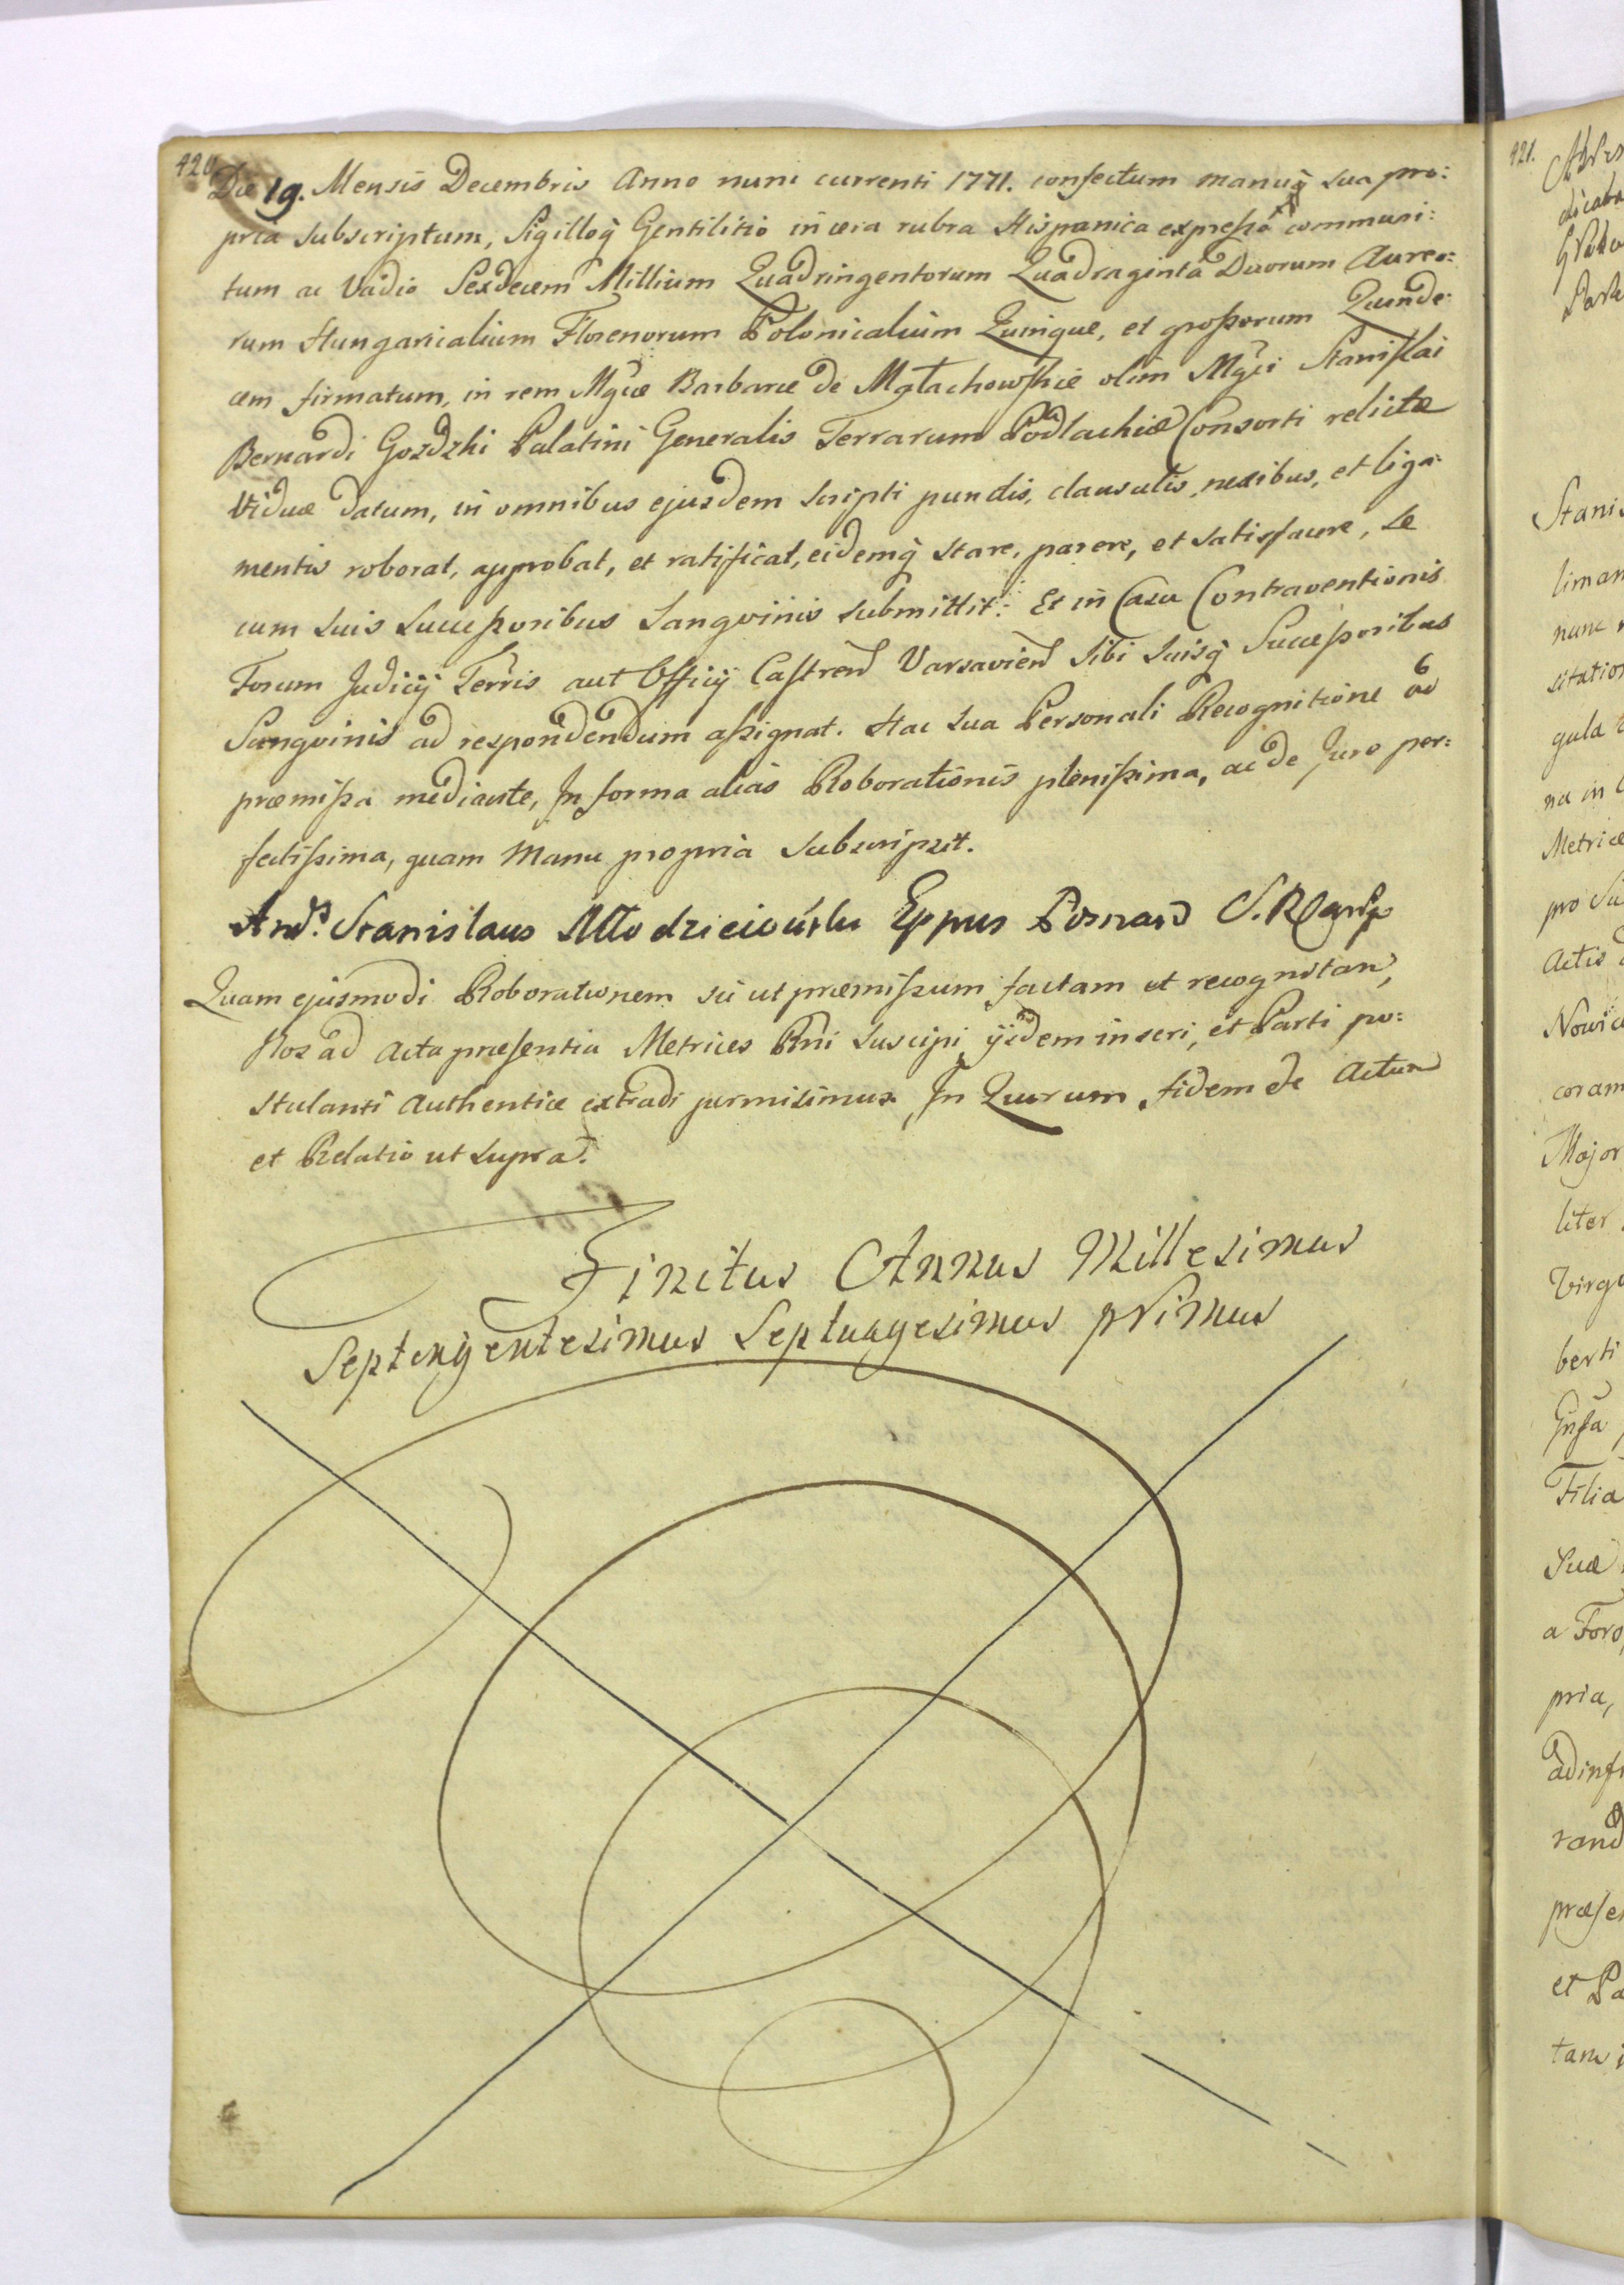 420
Die 19. Mensis Decembris Anno nunc currenti 1771. confectum manuq̃ sua pro:
pria subscriptum, Sigilloq̃ Gentilitio in cera rubra Hispanica expresso communi:
tum ac Vadio Sexdecem Millium Quadringentorum Quadraginta Duorum Aureo:
rum Hungaricalium Florenorum Polonicalium Quinque, et grossorum Quinde:
cem firmatum, in rem Mgcæ Barbaræ de Młachowskie olim Mgci Stanislai
Bernardi Gozdzki Palatini Generalis Terrarum Podlachiæ Consorti relictæ
Viduæ datum, in omnibus ejusdem scripti punctis, clausulis, nexibus, et liga:
mentis roborat, approbat, et ratificat, eidemq̃ stare, parere, et satisfacere, se
cum suis Successoribus Sangvinis submittit: Et in Casu Contraventionis
Forum Judicij Terris aut Officij Castren Varsavien Sibi Suisq̃ Successoribus
Sangvinis ad respondendum assignat. Hac sua Personali Recognitione ad
præmissa mediante, In forma alias Roborationis plenissima, ac de Jure per:
fectissima, quam Manu propria subscripsit.
Andr. Stanislaus Młodzieiowski Eppus Posnan S. R.
Quam ejusmodi Roborationem sic ut præmissum factam et recognitam,
Nos ad Acta præsentia Metrices Rni Suscipi, ijsdem inseri, et Parti po:
stulanti Authentice extradi permisimus. In Quorum fidem etc Actum
et Relatio ut supra.
Finitus Annus Millesimus
Septingentesimus Septuagesimus primus
421.
Stanis
liman
nunc
citation
gula
na in
Metricæ
pro Su
Actis
Nowice
coram
Major
liter
Virgo
berti
Filia
Suæ
a Foro,
pria,
ad infr
rand
præse
et Pa
tam